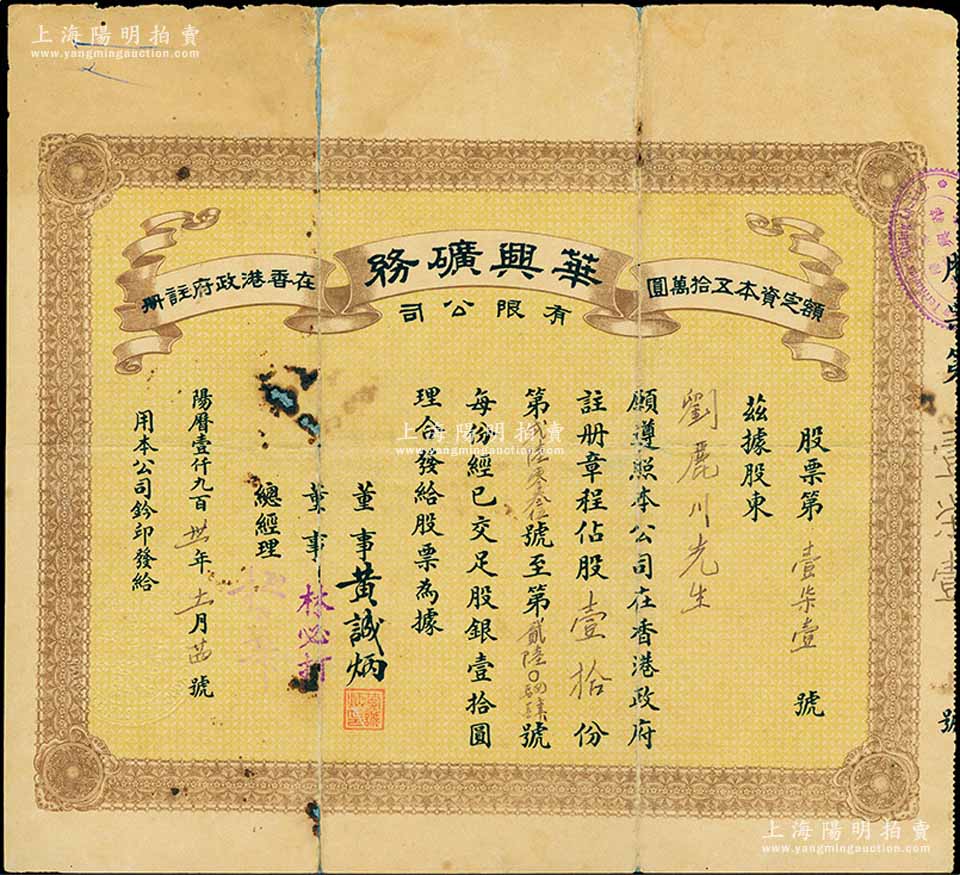 上海陽明拍賣
www.yangmingauction.com
額定資本五拾萬圓
華興礦務
有限公司
在香港政府註册
股票第壹柒壹號
茲據股東
劉麗川先生
願遵照本公司在香港政府
註册章程佔股壹拾份
號至第貳陸〇號
每份經已交足股銀壹拾圓
理合發給股票為據
董事黃誠炳
董事林必打
總經理
陽曆壹仟九百卅年十一月號
用本公司鈐印發給
股票第壹柒壹號
上海陽明拍賣
www.yangmingauction.com
上海陽明拍賣
www.yangmingauction.com